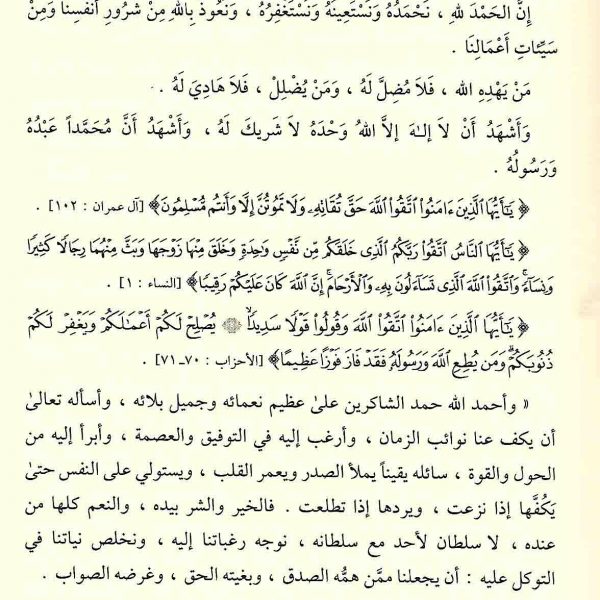 إِنَّ الحَمْدَ للهِ ، نَحْمَدُهُ وَنَسْتَعِينُهُ وَنَسْتَغْفِرُهُ ، وَنَعُوذُ بِاللهِ مِنْ شُرُورِ أَنْفُسِنَا وَمِنْ
سَيِّئَاتِ أَعْمَالِنَا .
مَنْ يَهْدِهِ الله ، فَلاَ مُضِلَّ لَهُ ، وَمَنْ يُضْلِلْ ، فَلاَ هَادِيَ لَهُ .
وَأَشْهَدُ أَنْ لاَ إِلـٰهَ إلاَّ اللهُ وَحْدَهُ لاَ شَرِيكَ لَهُ ، وَأَشْهَدُ أَنَّ مُحَمَّداً عَبْدُهُ
وَرَسُولُهُ .
﴿ يَـٰٓأَيُّهَا ٱلَّذِينَ ءَامَنُوا۟ ٱتَّقُوا۟ ٱللَّهَ حَقَّ تُقَاتِهِۦ وَلَا تَمُوتُنَّ إِلَّا وَأَنتُم مُّسْلِمُونَ ﴾ [آل عمران : ١٠٢] .
﴿ يَـٰٓأَيُّهَا ٱلنَّاسُ ٱتَّقُوا۟ رَبَّكُمُ ٱلَّذِى خَلَقَكُم مِّن نَّفْسٍ وَٰحِدَةٍ وَخَلَقَ مِنْهَا زَوْجَهَا وَبَثَّ مِنْهُمَا رِجَالًا كَثِيرًا
وَنِسَآءً ۚ وَٱتَّقُوا۟ ٱللَّهَ ٱلَّذِى تَسَآءَلُونَ بِهِۦ وَٱلْأَرْحَامَ ۚ إِنَّ ٱللَّهَ كَانَ عَلَيْكُمْ رَقِيبًا ﴾ [النساء : ١] .
﴿ يَـٰٓأَيُّهَا ٱلَّذِينَ ءَامَنُوا۟ ٱتَّقُوا۟ ٱللَّهَ وَقُولُوا۟ قَوْلًا سَدِيدًا ۝ يُصْلِحْ لَكُمْ أَعْمَـٰلَكُمْ وَيَغْفِرْ لَكُمْ
ذُنُوبَكُمْ ۗ وَمَن يُطِعِ ٱللَّهَ وَرَسُولَهُۥ فَقَدْ فَازَ فَوْزًا عَظِيمًا ﴾ [الأحزاب : ٧٠ـ٧١] .
« وأحمد الله حمد الشاكرين علىٰ عظيم نعمائه وجميل بلائه ، وأسأله تعالىٰ
أن يكف عنا نوائب الزمان ، وأرغب إليه في التوفيق والعصمة ، وأبرأ إليه من
الحول والقوة ، سائله يقيناً يملأ الصدر ويعمر القلب ، ويستولي على النفس حتىٰ
يَكُفَّها إذا نزعت ، ويردها إذا تطلعت . فالخير والشر بيده ، والنعم كلها من
عنده ، لا سلطان لأحد مع سلطانه ، نوجه رغباتنا إليه ، ونخلص نياتنا في
التوكل عليه : أن يجعلنا ممَّن همُّه الصدق ، وبغيته الحق ، وغرضه الصواب .